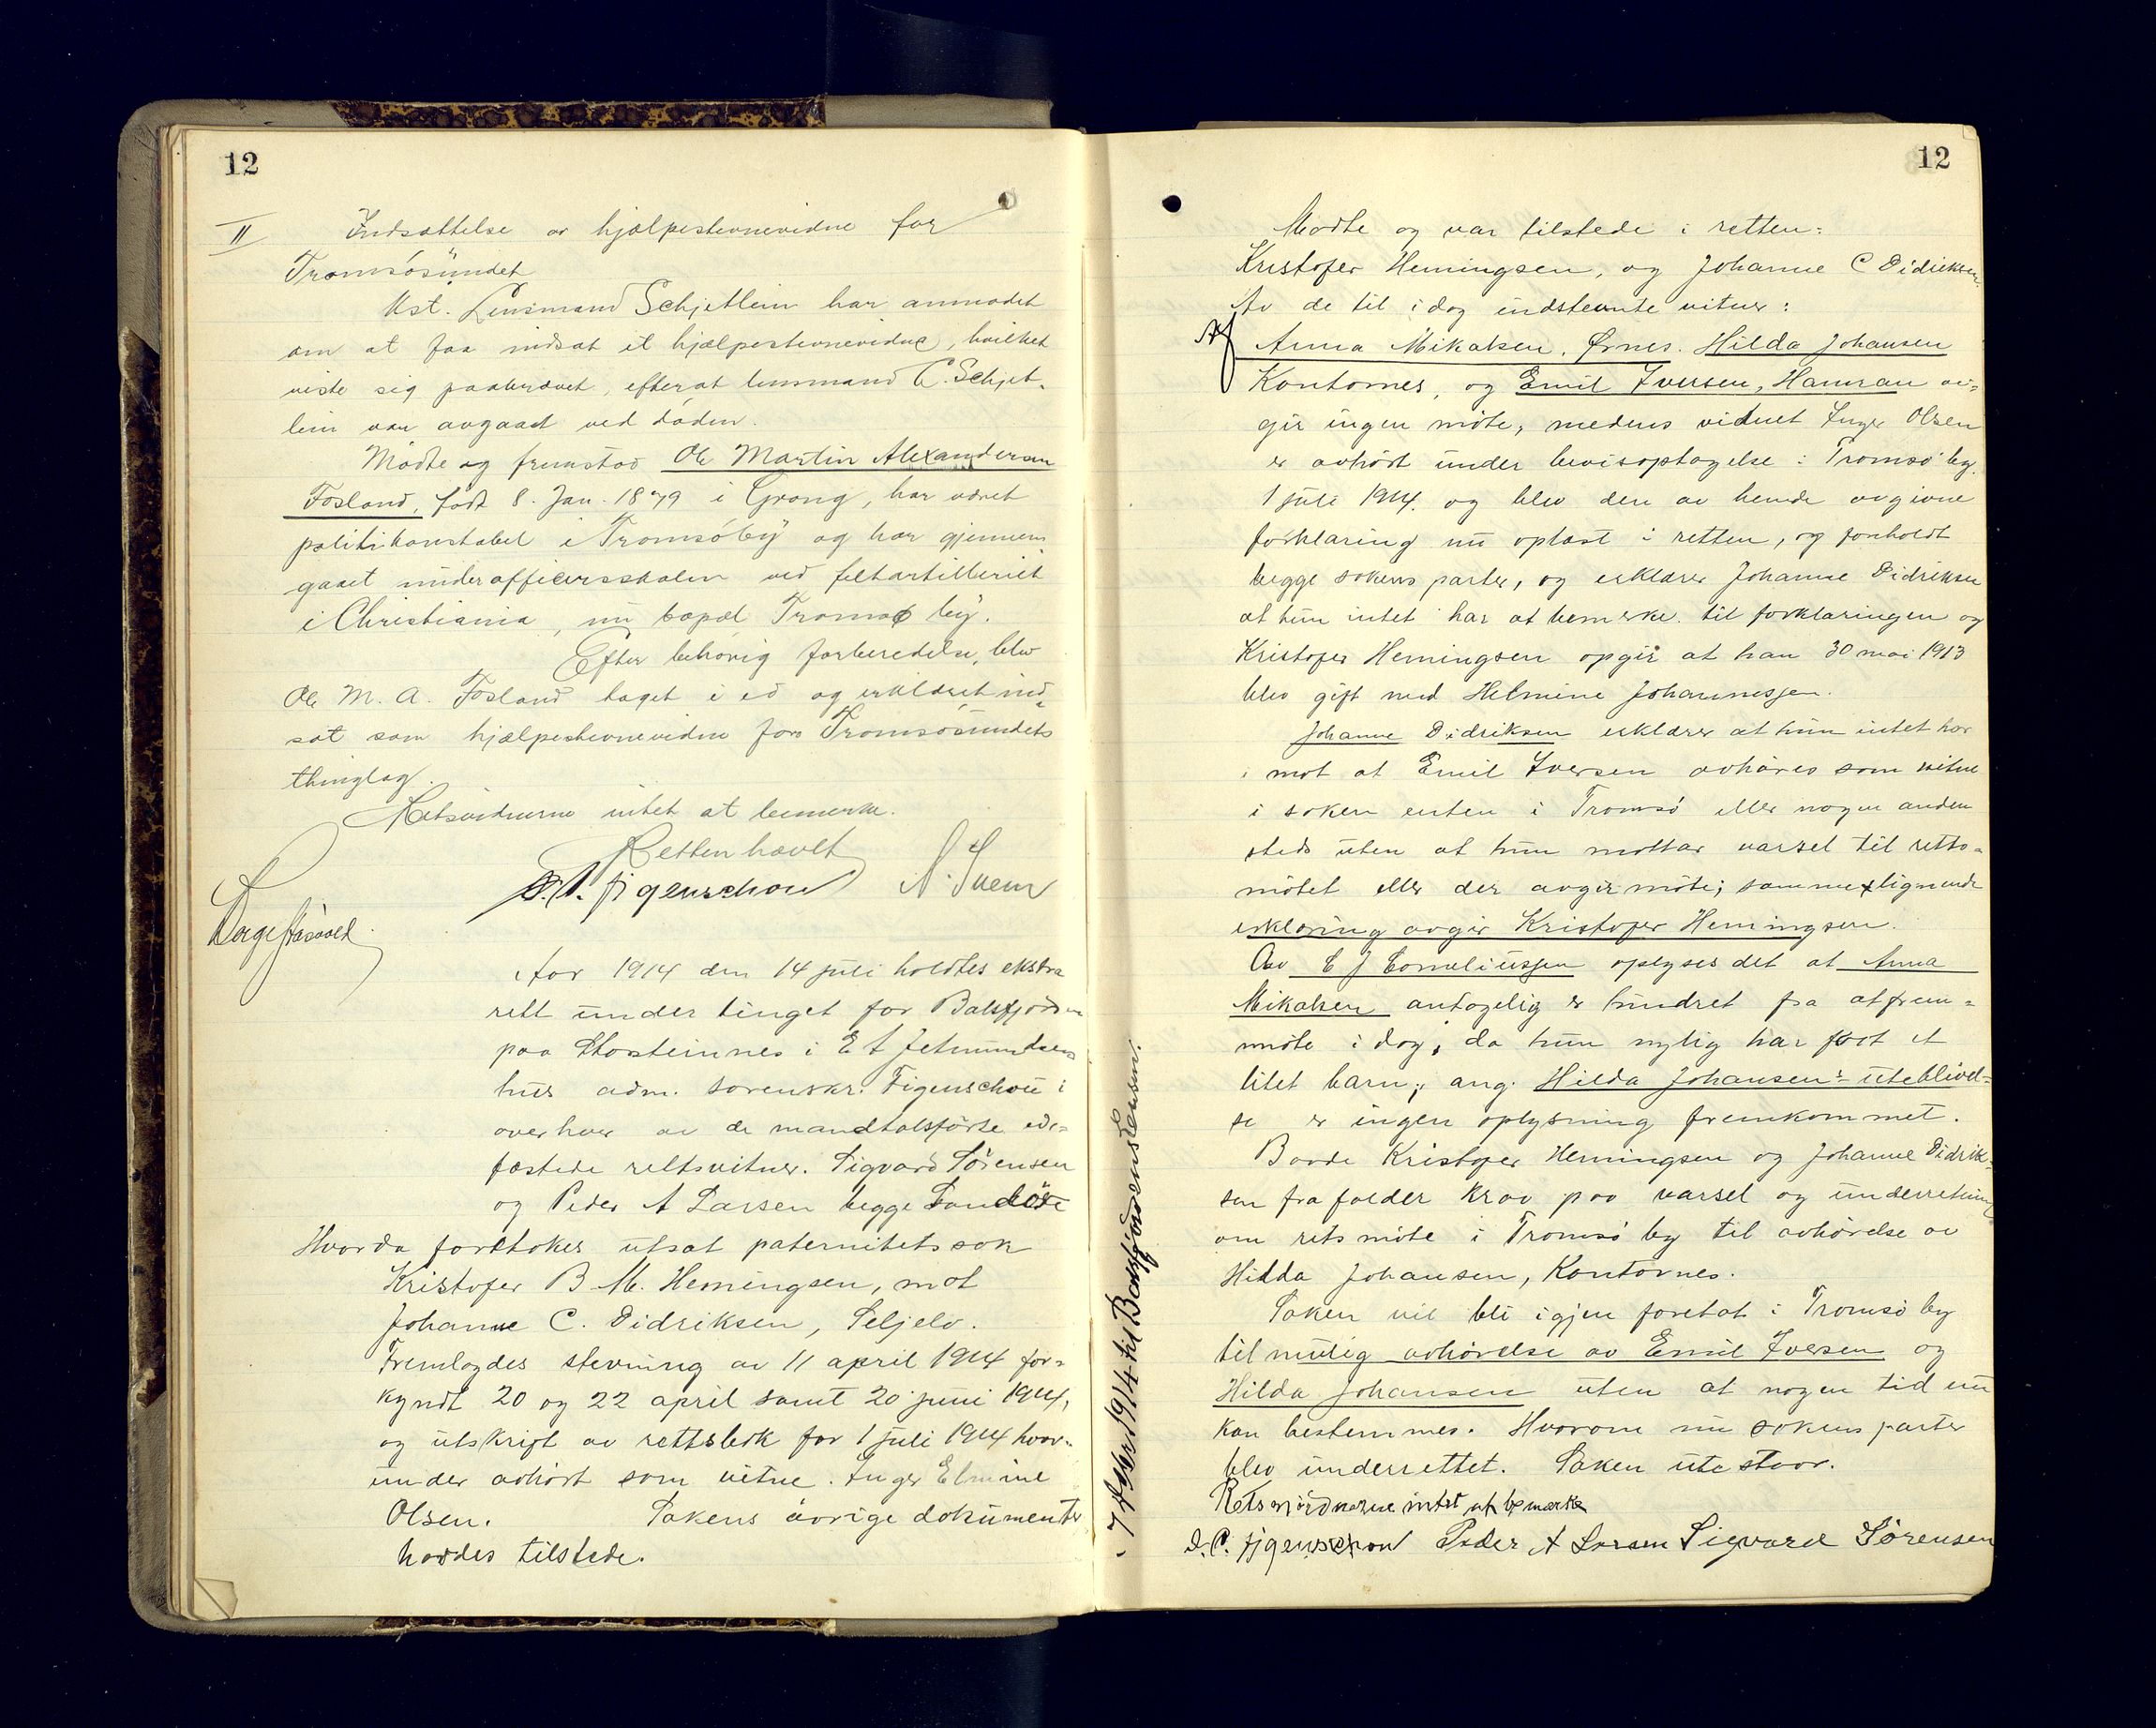 12
II Indsættelse av hjælpestevnevidne for
Tromsösundet
Kst. Lensmand Schjetlein har anmodet
om at faa indsat et hjælpestevnevidne, hvilket
viste sig paakrævet, efterat lensmand C. Schjet-
lein var avgaaet ved döden.
Mödte og fremstod Ole Martin Alexandersen
Fosland, född 8. Jan. 1879 i Grong, har været
politikonstabel i Tromsöby og har gjennem
gaaet underofficersskolen ved feltartilleriet
i Christiania, nu bopæl Tromsø by.
Efter behörig forberedelse, blev
Ole M. A. Fosland taget i ed og erklæret ind-
sat som hjælpestevnevidne for Tromsösundets
thinglag.
Retsvidnerne intet at bemerke.
Retten hævet
Figenschou
Aar 1914 den 14 juli holdtes ekstra
rett under tinget for Balsfjorden
paa Storsteinnes i E A Jetmundsens
hus adm. sorenskr. Figenschou i
overhver av de mandtalsförte ede-
fæstede rettsvitner. Sigvard Sörensen
og Peder A Larsen begge
Hvorda foretokes utsat paternitetssak
Kristofer B M. Hemingsen, mot
Johanne C. Didriksen, Seljelv.
Fremlagdes stevning av 11 april 1914 for-
kyndt 20 og 22 april samt 20 juni 1914,
og utskrift av rettsbok for 1 juli 1914 hvor-
under avhört som vitne. Inger Elmine
Olsen. Sakens övrige dokumenter
havdes tilstede.
12
Mödte og var tilstede i retten:
Kristofer Hemingsen, og Johanne C Didriksen.
Av de til idag indstevnte vitner:
Anna Mikalsen. Ørnes. Hilda Johansen
Kantornes, og Emil Iversen, Hamran av-
gir ingen möte, medens vidnet Inger Olsen
er avhört under bevisoptagelse i Tromsö by.
1 juli 1914. og blev den av hende avgivne
forklaring nu oplæst i retten, og foreholdt
begge sakens parter, og erklærer Johanne Didriksen
at hun intet har at bemerke til forklaringen og
Kristofer Hemingsen opgir at han 30 mai 1913
blev gift med Helmine Johannessen.
Johanne Didriksen erklærer at hun intet har
i mot at Emil Iversen avhöres som vitne
i saken enten i Tromsö eller nogen anden
steds uten at hun mottar varsel til retts-
mötet eller der avgir möte; samme lignende
erklæring avgir Kristofer Hemingsen.
Av E J Corneliussen oplyses det at Anna
Mikalsen antagelig er hindret fra at frem-
möte i dag, da hun nylig har fæt et
litet barn, ang. Hilda Johansens uteblivel-
se er ingen oplysning fremkommet.
Baade Kristofer Hemingsen og Johanne Didrik-
sen frafalder krav paa varsel og underretning
om retsmöte i Tromsö by til avhörelse av
Hilda Johansen, Kantornes.
Saken vil bli igjen foretat i Tromsö by
til mulig avhörelse av Emil Iversen og
Hilda Johansen uten at nogen tid nu
kan bestemmes. Hvorom nu sakens parter
blev underrettet. Saken utestaar.
Retsvidnerne intet at bemerke
Figenschou Peder A Larsen Sigvard Sörensen
1914 til Balsfjordens Lensm.